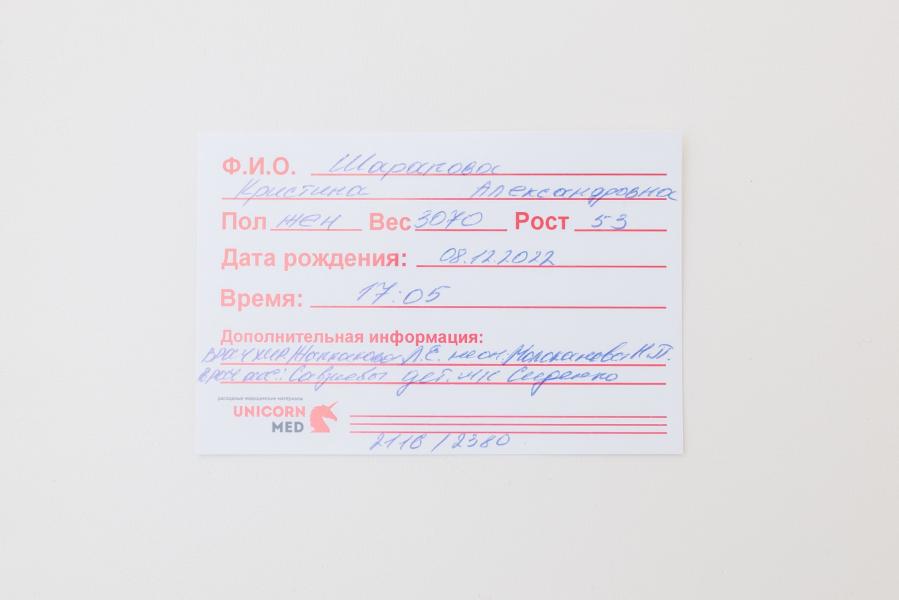 Ф.И.О. Шарапова
Кристина Александровна
Пол жен Вес 3070 Рост 53
Дата рождения: 08.12.2022
Время: 17:05
Дополнительная информация:
врач хир Л.Е. неон. Молоканова Н.П.
врач дет. м/с Сиденко
расходные медицинские материалы
UNICORN
MED
2116 / 2380